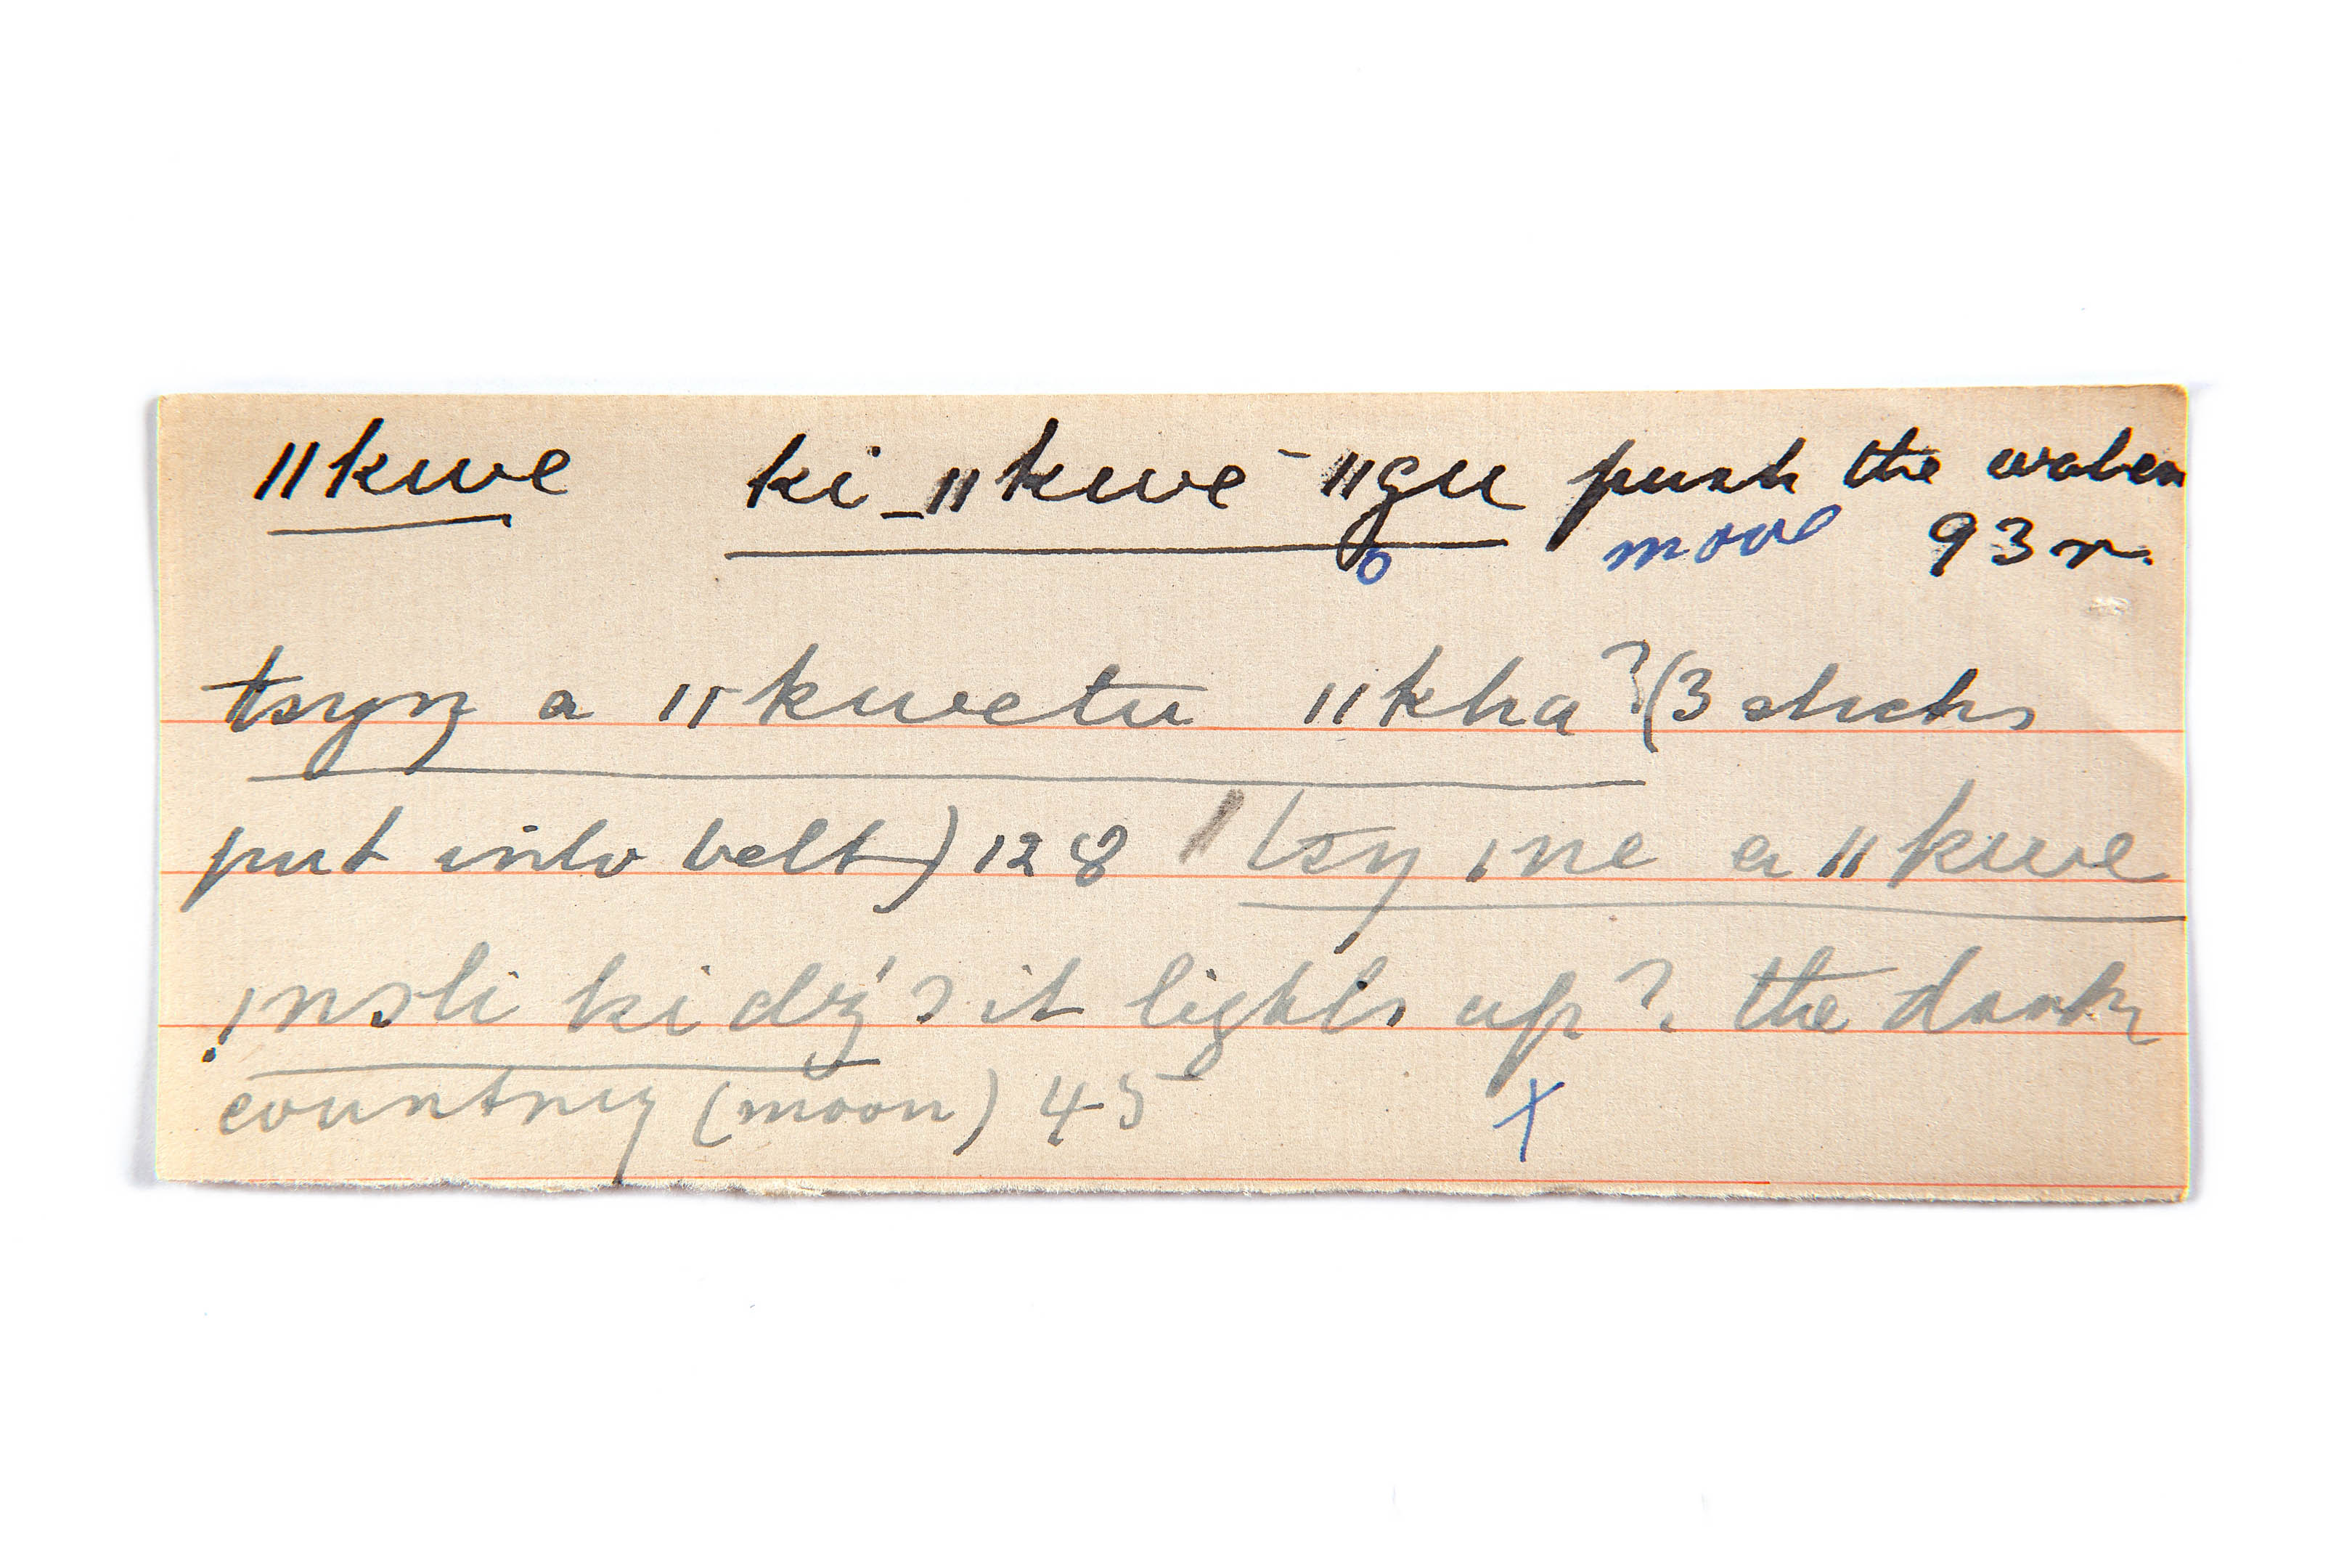 ǁkwe ki_ǁkwe ¯ǁgu push the water
move 93 r.
tsyŋ a ǁkwetu ǁkha ? (3 sticks
put into belt) 128 / tsy ıne a ǁkwe
!nsli ki dz'ɔ it lights up? the dark
country (moon) 45 x